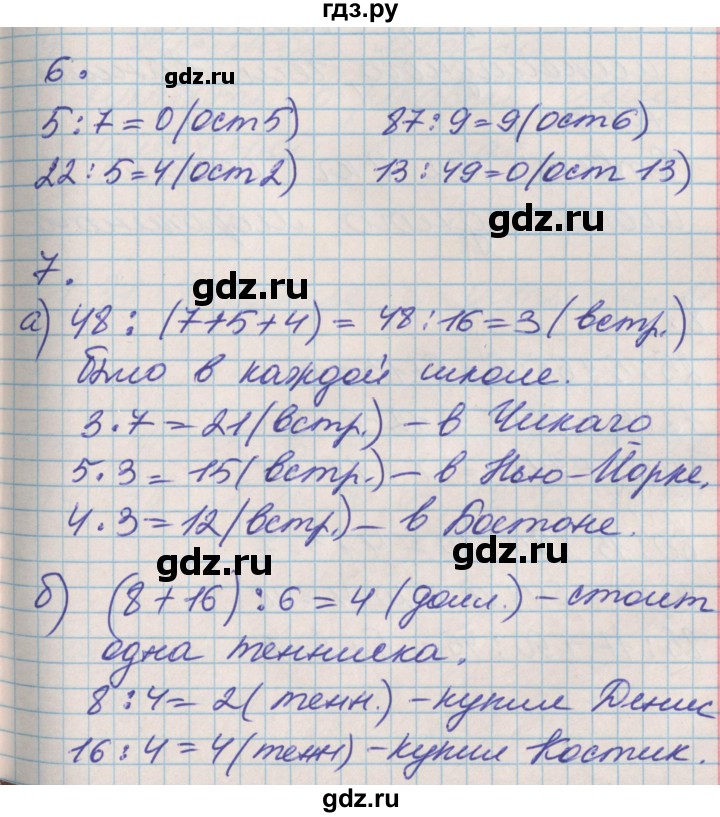 гдз.ру
6.
gdz.ru
5:7=0(ост5) 87:9=9(ост6)
22:5=4(ост2) 13:49=0(ост 13)
gdz.ru
7.
gdz.ru
а) 48:(7+5+4)=48:16=3(встр.)
было в каждой школе.
3·7=21(встр.)-в Чикаго
5·3=15(встр.)-в Нью-Йорке,
4·3=12(встр.)-в Бостоне.
gdz.ru gdz.ru
б) (8+16):6=4(долл.)-стоит
одна тенниска.
8:4=2(тенн.)-купил Денис
16:4=4(тенн)-купил Костик.
gdz.ru